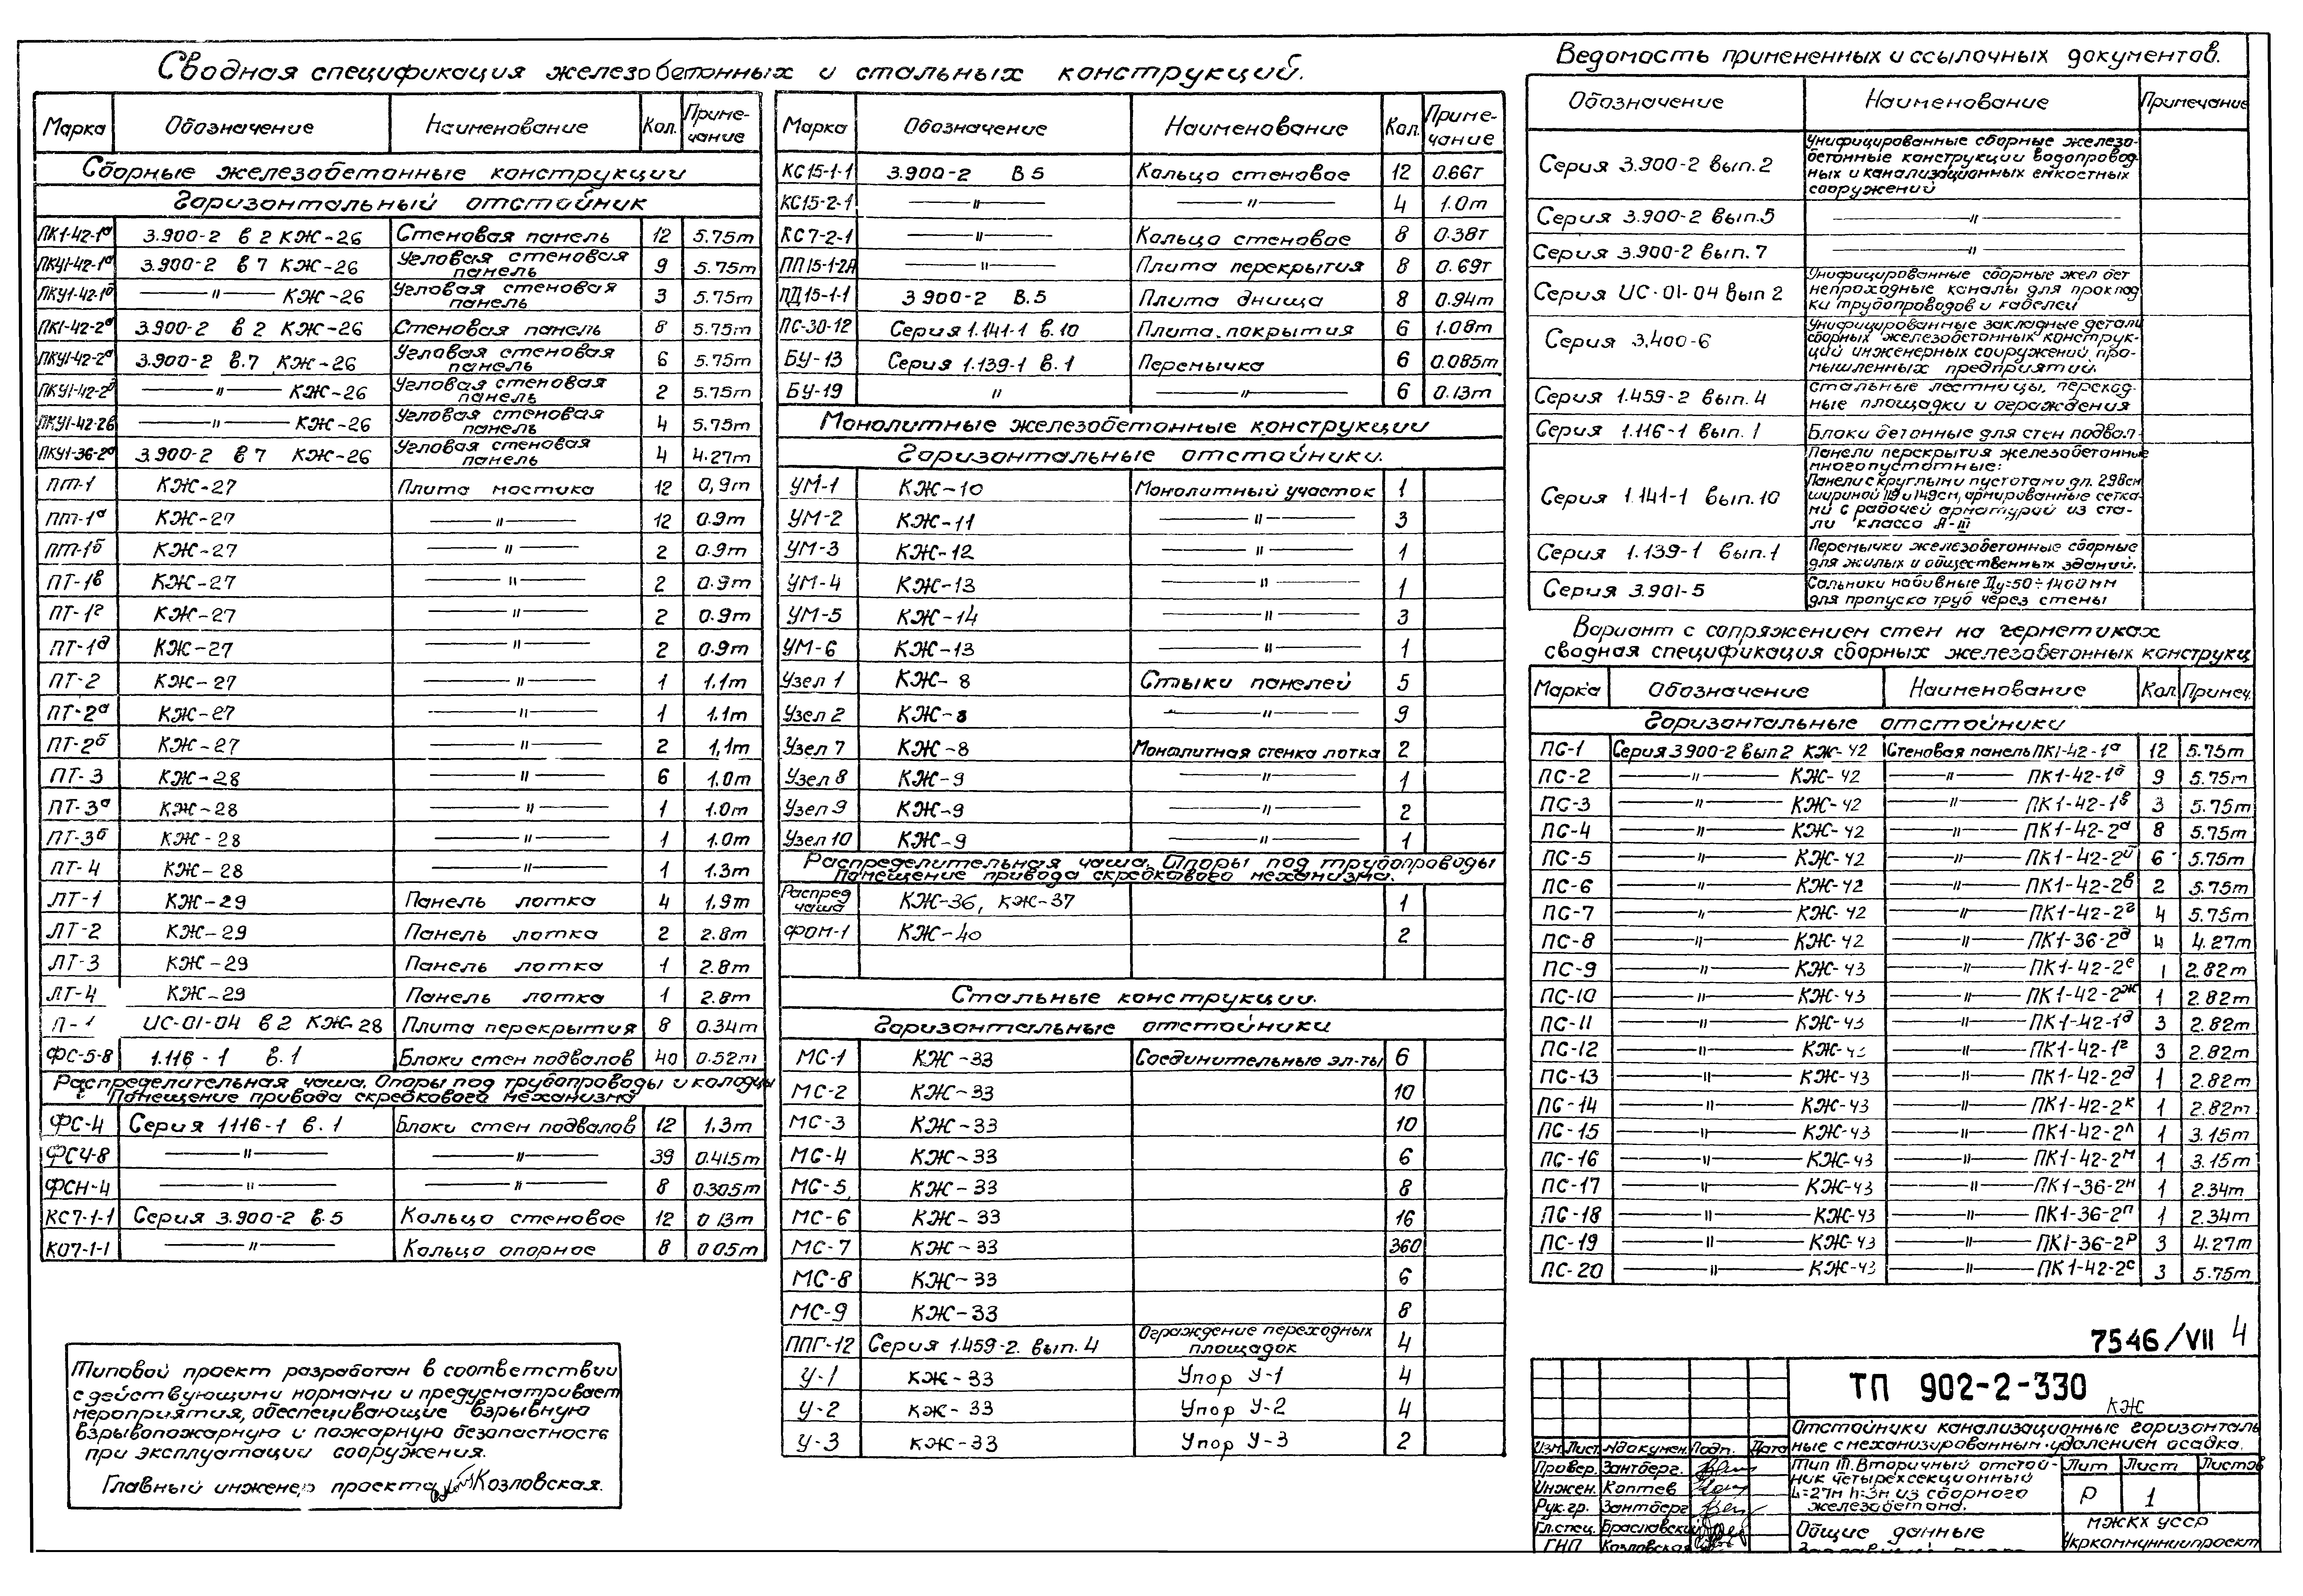 Сводная спецификация железобетонных и стальных конструкций.
Марка Обозначение Наименование Кол. Приме-
чание
Сборные железобетонные конструкции
Горизонтальный отстойник
ПК1-42-1а 3.900-2 в 2 КЖ-26 Стеновая панель 12 5.75т
ПКУ1-42-1а 3.900-2 в 7 КЖ-26 Угловая стеновая панель 9 5.75т
ПКУ1-42-1б —"— КЖ-26 Угловая стеновая панель 3 5.75т
ПК1-42-2а 3.900-2 в 2 КЖ-26 Стеновая панель 8 5.75т
ПКУ1-42-2а 3.900-2 в.7 КЖ-26 Угловая стеновая панель 6 5.75т
ПКУ1-42-2б —"— КЖ-26 Угловая стеновая панель 2 5.75т
ПКУ1-42-2в —"— КЖ-26 Угловая стеновая панель 4 5.75т
ПКУ1-36-2а 3.900-2 в 7 КЖ-26 Угловая стеновая панель 4 4.27т
ПТ-1 КЖ-27 Плита мостика 12 0,9т
ПТ-1а КЖ-27 —"— 12 0.9т
ПТ-1б КЖ-27 —"— 2 0.9т
ПТ-1в КЖ-27 —"— 2 0.9т
ПТ-1г КЖ-27 —"— 2 0.9т
ПТ-1д КЖ-27 —"— 2 0.9т
ПТ-2 КЖ-27 —"— 1 1.1т
ПТ-2а КЖ-27 —"— 1 1.1т
ПТ-2б КЖ-27 —"— 2 1,1т
ПТ-3 КЖ-28 —"— 6 1.0т
ПТ-3а КЖ-28 —"— 1 1.0т
ПТ-3б КЖ-28 —"— 1 1.0т
ПТ-4 КЖ-28 —"— 1 1.3т
ЛТ-1 КЖ-29 Панель лотка 4 1.9т
ЛТ-2 КЖ-29 Панель лотка 2 2.8т
ЛТ-3 КЖ-29 Панель лотка 1 2.8т
ЛТ-4 КЖ-29 Панель лотка 1 2.8т
П-1 ИС-01-04 в 2 КЖ-28 Плита перекрытия 8 0.34т
ФС-5-8 1.116-1 в.1 Блоки стен подвалов 40 0.52т
Распределительная чаша. Опоры под трубопроводы и колодцы
Помещение привода скребкового механизма
ФС-4 Серия 1116-1 в.1 Блоки стен подвалов 12 1.3т
ФС4-8 —"— —"— 39 0.415т
ФСН-4 —"— —"— 8 0.305т
КС7-1-1 Серия 3.900-2 в.5 Кольцо стеновое 12 0 13т
КО7-1-1 —"— Кольцо опорное 8 0 05т
Типовой проект разработан в соответствии
с действующими нормами и предусматривает
мероприятия, обеспечивающие взрывную
взрывопожарную и пожарную безопастность
при эксплуатации сооружения.
Главный инженер проекта Козловская.
Марка Обозначение Наименование Кол. Приме-
чание
КС15-1-1 3.900-2 В 5 Кольцо стеновое 12 0.66т
КС15-2-1 —"— —"— 4 1.0т
КС7-2-1 —"— Кольцо стеновое 8 0.38т
ПП15-1-2А —"— Плита перекрытия 8 0.69т
ПД15-1-1 3 900-2 В.5 Плита днища 8 0.94т
ПС-30-12 Серия 1.141-1 в.10 Плита покрытия 6 1.08т
БУ-13 Серия 1.139-1 в.1 Перемычка 6 0.085т
БУ-19 " —"— 6 0.13т
Монолитные железобетонные конструкции
Горизонтальные отстойники.
УМ-1 КЖ-10 Монолитный участок 1
УМ-2 КЖ-11 —"— 3
УМ-3 КЖ-12 —"— 1
УМ-4 КЖ-13 —"— 1
УМ-5 КЖ-14 —"— 3
УМ-6 КЖ-13 —"— 1
Узел 1 КЖ-8 Стыки панелей 5
Узел 2 КЖ-8 —"— 9
Узел 7 КЖ-8 Монолитная стенка лотка 2
Узел 8 КЖ-9 —"— 1
Узел 9 КЖ-9 —"— 2
Узел 10 КЖ-9 —"— 1
Распределительная чаша. Опоры под трубопроводы
Помещение привода скребкового механизма.
Распред чаша КЖ-36, КЖ-37 1
ФОМ-1 КЖ-40 2
Стальные конструкции.
Горизонтальные отстойники
МС-1 КЖ-33 Соединительные эл-ты 6
МС-2 КЖ-33 10
МС-3 КЖ-33 10
МС-4 КЖ-33 6
МС-5 КЖ-33 8
МС-6 КЖ-33 16
МС-7 КЖ-33 360
МС-8 КЖ-33 6
МС-9 КЖ-33 8
ППГ-12 Серия 1.459-2. вып.4 Ограждение переходных площадок 4
У-1 КЖ-33 Упор У-1 4
У-2 КЖ-33 Упор У-2 4
У-3 КЖ-33 Упор У-3 2
Ведомость примененных и ссылочных документов.
Обозначение Наименование Примечание
Серия 3.900-2 вып.2 Унифицированные сборные железо-
бетонные конструкции водопровод-
ных и канализационных емкостных
сооружений
Серия 3.900-2 вып.5 —"—
Серия 3.900-2 вып.7 —"—
Серия ИС-01-04 вып 2 Унифицированные сборные жел бет
непроходные каналы для проклад
ки трубопроводов и кабелей
Серия 3.400-6 Унифицированные закладные детали
сборных железобетонных конструк-
ций инженерных сооружений про-
мышленных предприятий.
Серия 1.459-2 вып.4 Стальные лестницы, переход-
ные площадки и ограждения
Серия 1.116-1 вып.1 Блоки бетонные для стен подвал-
Серия 1.141-1 вып.10 Панели перекрытия железобетонные
многопустотные:
Панели с круглыми пустотами дл. 298см
шириной 119 и 149см, армированные сетка-
ми с рабочей арматурой из ста-
ли класса А-III
Серия 1.139-1 вып.1 Перемычки железобетонные сборные
для жилых и общественных зданий.
Серия 3.901-5 Сальники набивные Ду=50÷1400мм
для пропуска труб через стены
Вариант с сопряжением стен на герметиках
сводная спецификация сборных железобетонных конструкц
Марка Обозначение Наименование Кол. Примеч.
Горизонтальные отстойники
ПС-1 Серия 3 900-2 вып 2 КЖ-42 Стеновая панель ПК1-42-1а 12 5.75т
ПС-2 —"— КЖ-42 —"— ПК1-42-1б 9 5.75т
ПС-3 —"— КЖ-42 —"— ПК1-42-1в 3 5.75т
ПС-4 —"— КЖ-42 —"— ПК1-42-2а 8 5.75т
ПС-5 —"— КЖ-42 —"— ПК1-42-2б 6 5.75т
ПС-6 —"— КЖ-42 —"— ПК1-42-2в 2 5.75т
ПС-7 —"— КЖ-42 —"— ПК1-42-2г 4 5.75т
ПС-8 —"— КЖ-42 —"— ПК1-36-2д 4 4.27т
ПС-9 —"— КЖ-43 —"— ПК1-42-2е 1 2.82т
ПС-10 —"— КЖ-43 —"— ПК1-42-2ж 1 2.82т
ПС-11 —"— КЖ-43 —"— ПК1-42-1д 3 2.82т
ПС-12 —"— КЖ-43 —"— ПК1-42-1г 3 2.82т
ПС-13 —"— КЖ-43 —"— ПК1-42-2д 1 2.82т
ПС-14 —"— КЖ-43 —"— ПК1-42-2к 1 2.82т
ПС-15 —"— КЖ-43 —"— ПК1-42-2л 1 3.15т
ПС-16 —"— КЖ-43 —"— ПК1-42-2м 1 3.15т
ПС-17 —"— КЖ-43 —"— ПК1-36-2н 1 2.34т
ПС-18 —"— КЖ-43 —"— ПК1-36-2п 1 2.34т
ПС-19 —"— КЖ-43 —"— ПК1-36-2р 3 4.27т
ПС-20 —"— КЖ-43 —"— ПК1-42-2с 3 5.75т
7546/VII 4
ТП 902-2-330
КЖ
Отстойники канализационные горизонталь
ные с механизированным удалением осадка.
Изм. Лист. N докумен. Подп. Дата
Провер. Зантберг.
Инжен. Коптев
Рук.гр. Зантберг
Гл.спец. Браславский
ГНП Козловская
Тип III. Вторичный отстой-
ник четырехсекционный
L=27м h=3м из сборного
железобетона.
Лит Лист Листов
Р 1
Общие данные
МЖКХ УССР
Укркоммунниипроект